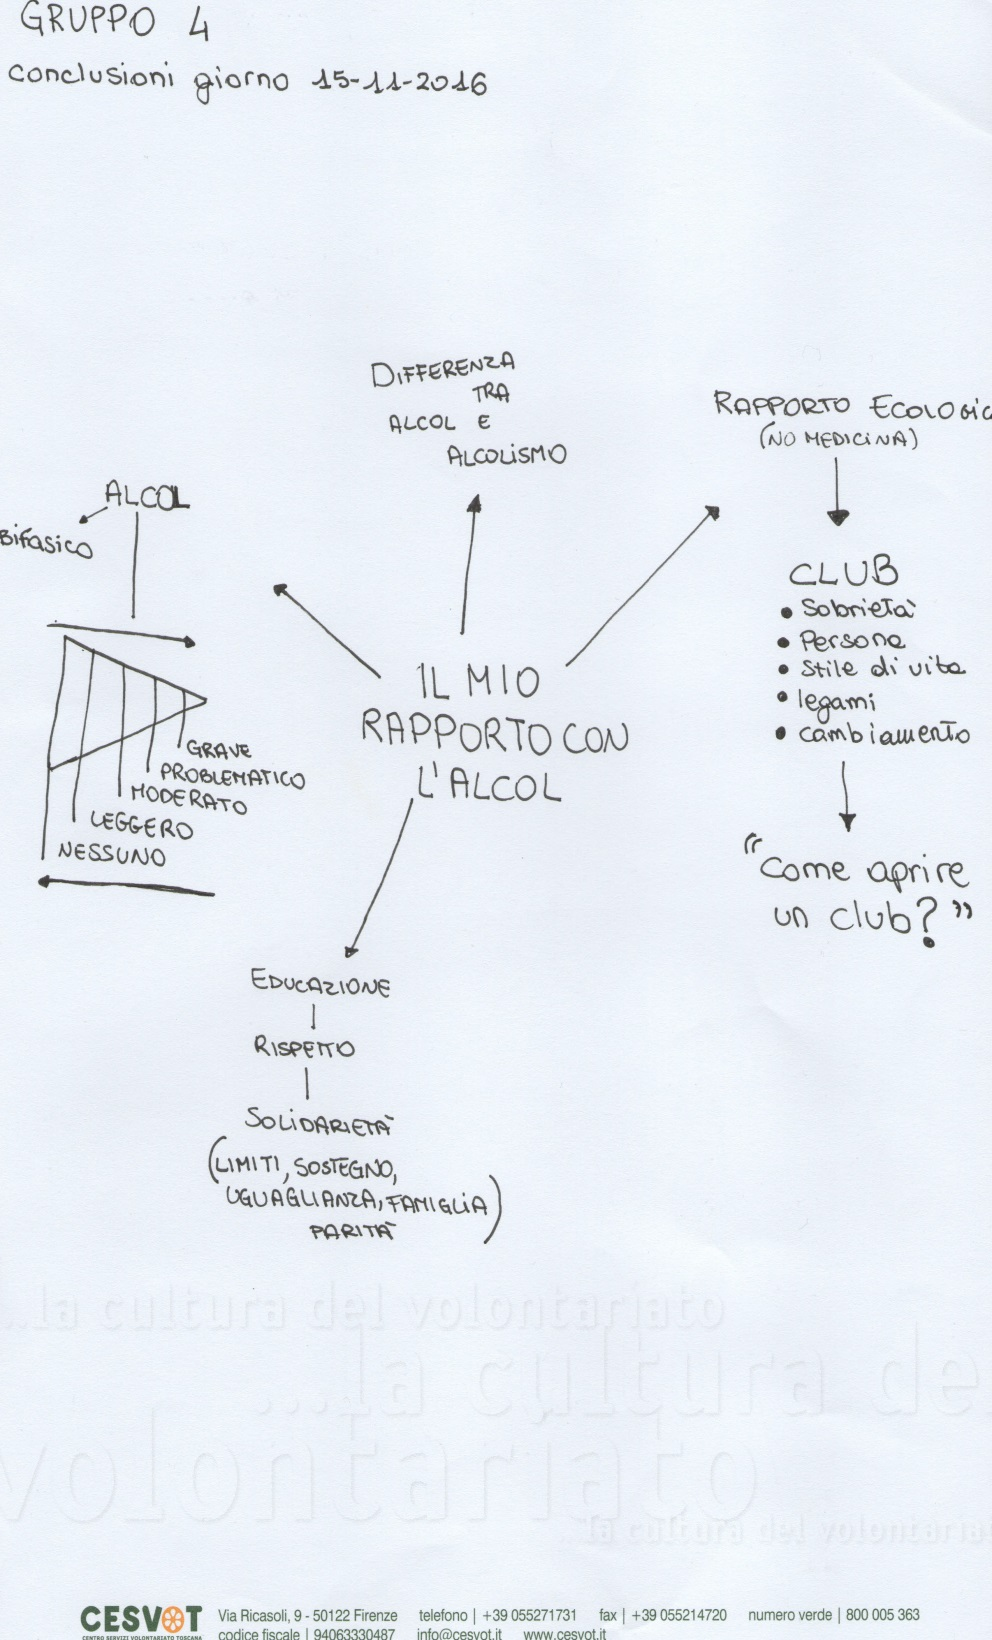 GRUPPO 4
conclusioni giorno 15-11-2016
DIFFERENZA
TRA
ALCOL E
ALCOLISMO
RAPPORTO ECOLOGIC
(NO MEDICINA)
ALCOL
Bifasico
CLUB
• Sobrietà
• Persona
• Stile di vita
• legami
• cambiamento
IL MIO
RAPPORTO CON
L'ALCOL
GRAVE
PROBLEMATICO
MODERATO
LEGGERO
NESSUNO
"Come aprire
un club?"
EDUCAZIONE
RISPETTO
SOLIDARIETÀ
(LIMITI, SOSTEGNO,
UGUAGLIANZA, FAMIGLIA
PARITÀ)
...la cultura del volontariato
...la cultura de
volontariato
la cultura del volontaria
CESVOT
CENTRO SERVIZI VOLONTARIATO TOSCANA
Via Ricasoli, 9 - 50122 Firenze telefono | +39 055271731 fax | +39 055214720 numero verde | 800 005 363
codice fiscale | 94063330487 info@cesvot.it www.cesvot.it